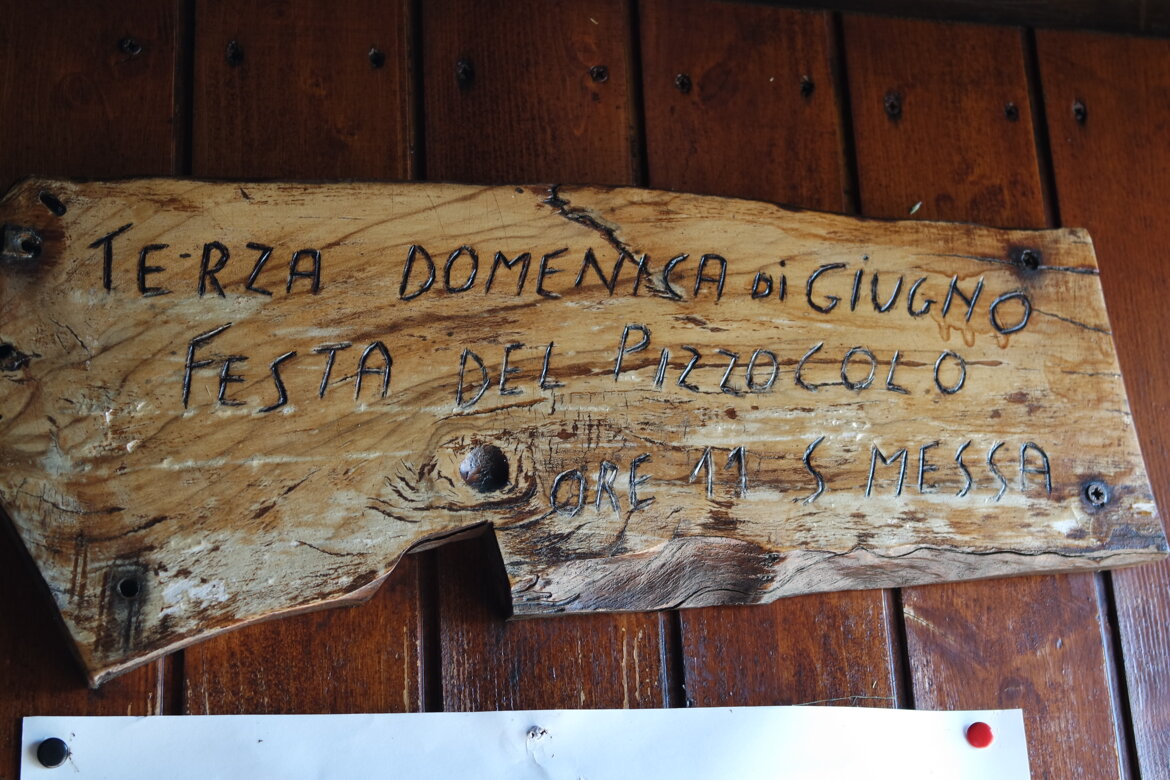 TERZA DOMENICA Di GiUGNO
FESTA DEL PIZZOCOLO
ORE 11 S MESSA